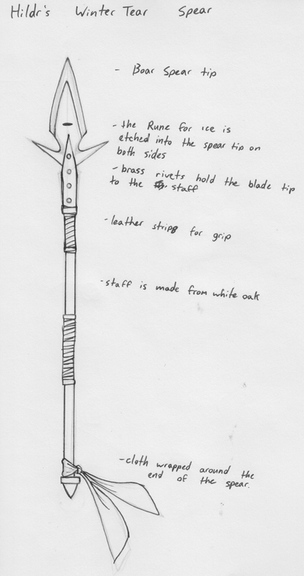 Hildr's Winter Tear Spear
- Boar Spear tip
- the Rune for ice is
etched into the spear tip on
both sides
- brass rivets hold the blade tip
to the staff
- leather strips for grip
- staff is made from white oak
- cloth wrapped around the
end of the spear.